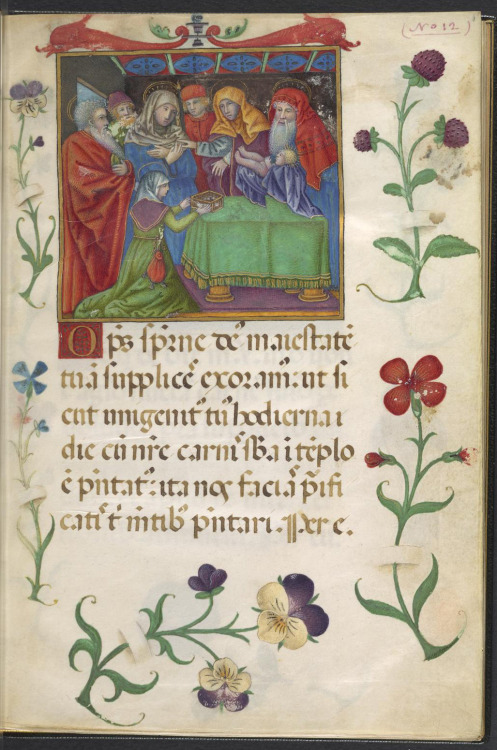 (No 12)
Op̄s sp̄rne dē maiestatē
tuā supplicē exoram᷒: ut si
cut unigenit᷒ tu᷒ hodierna i
die cū nr̄e carnī sb̄a ī tēplo
ē p̄ntat᷒: ita nos faciā p̄ifi
catī t̄ m̄tib᷒ p̄ntari. Per e.